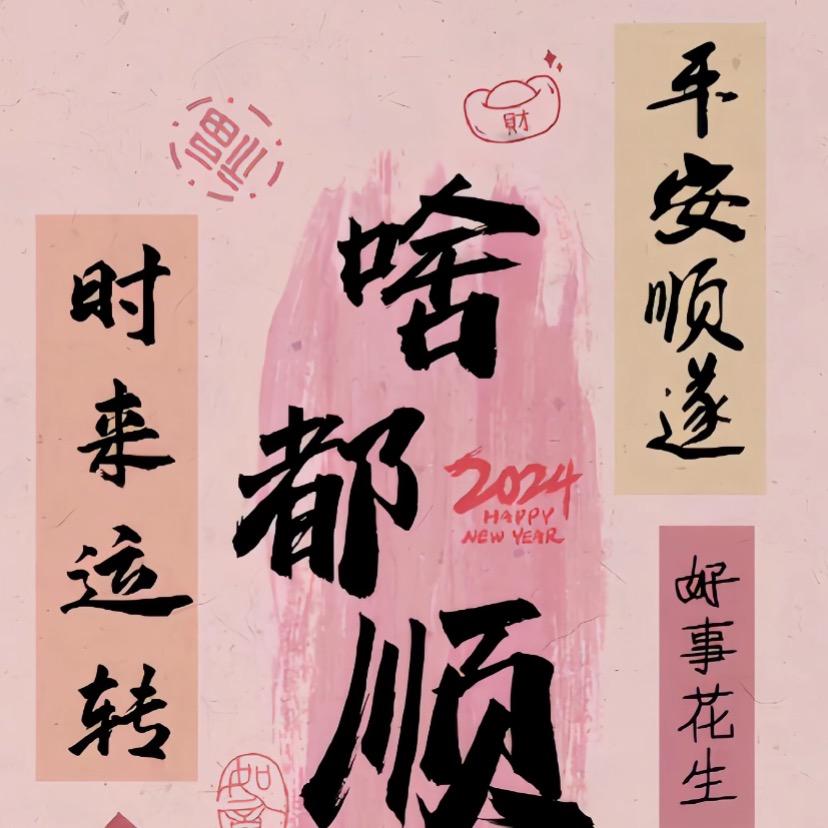 平安顺遂
财
福
啥都顺
时来运转
2024
HAPPY
NEW YEAR
好事花生
如意